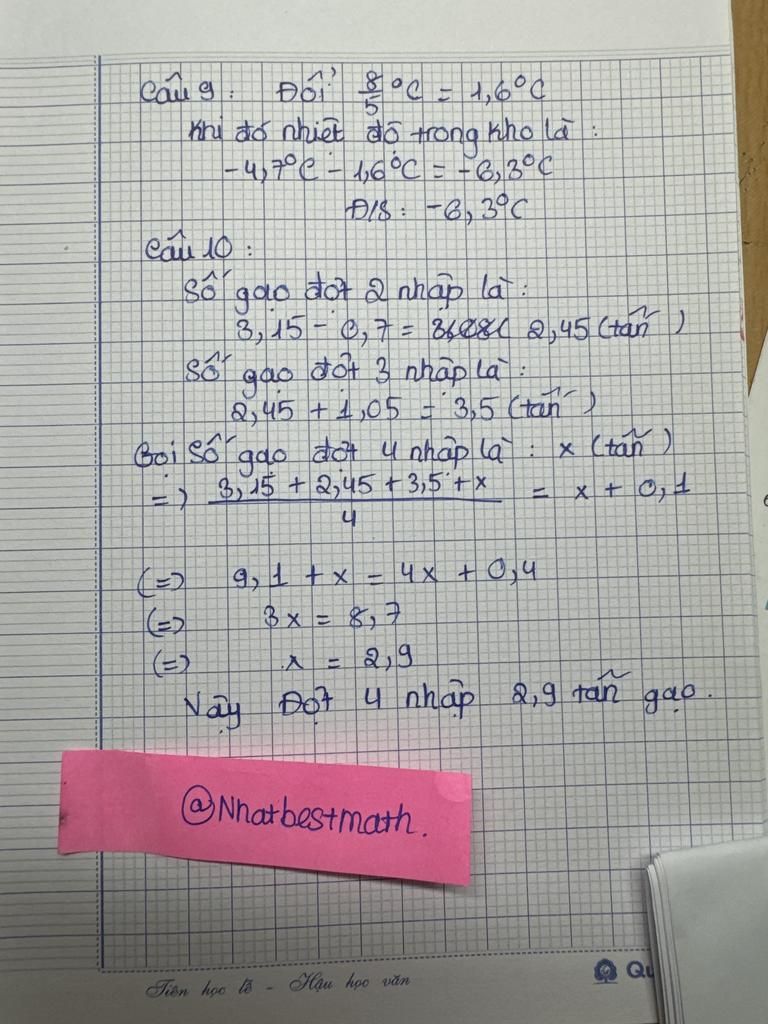 Câu 9 : Đổi 8/5 °C = 1,6°C
Khi đó nhiệt độ trong kho là :
-4,7°C - 1,6°C = -6,3°C
Đ/S : -6,3°C
Câu 10 :
Số gạo đợt 2 nhập là :
3,15 - 0,7 = 2,45 (tấn)
Số gạo đợt 3 nhập là :
2,45 + 1,05 = 3,5 (tấn)
Gọi số gạo đợt 4 nhập là : x (tấn)
=> (3,15 + 2,45 + 3,5 + x)/4 = x + 0,1
(=) 9,1 + x = 4x + 0,4
(=) 3x = 8,7
(=) x = 2,9
Vậy Đợt 4 nhập 2,9 tấn gạo.
@Nhatbestmath.
Tiên học lễ - Hậu học văn